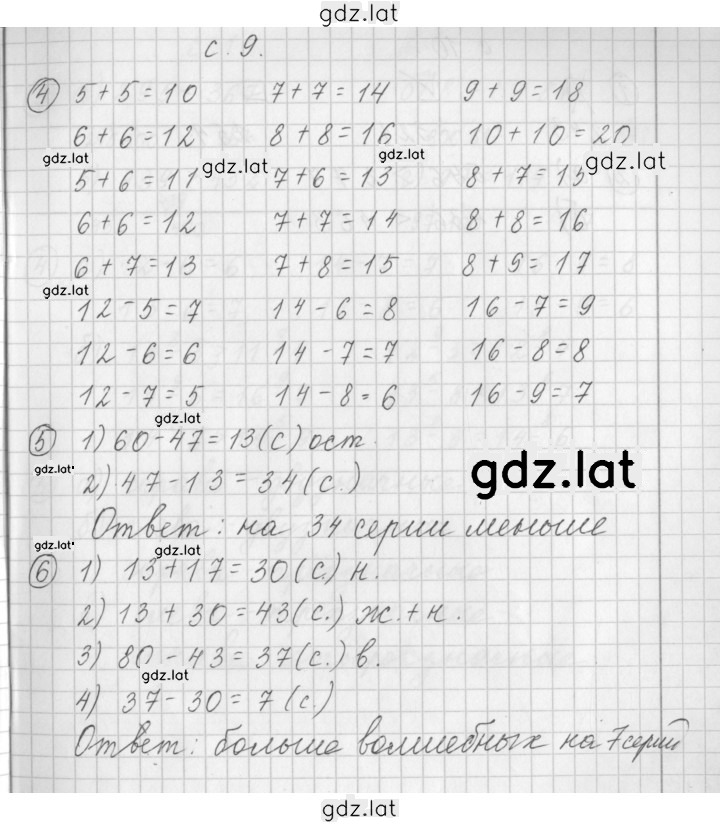 gdz.lat
с. 9.
4 5 + 5 = 10 7 + 7 = 14 9 + 9 = 18
6 + 6 = 12 8 + 8 = 16 10 + 10 = 20
gdz.lat gdz.lat gdz.lat gdz.lat
5 + 6 = 11 7 + 6 = 13 8 + 7 = 15
6 + 6 = 12 7 + 7 = 14 8 + 8 = 16
6 + 7 = 13 7 + 8 = 15 8 + 9 = 17
gdz.lat
12 - 5 = 7 14 - 6 = 8 16 - 7 = 9
12 - 6 = 6 14 - 7 = 7 16 - 8 = 8
12 - 7 = 5 14 - 8 = 6 16 - 9 = 7
gdz.lat
5 1) 60 - 47 = 13 (с) ост.
gdz.lat gdz.lat
2) 47 - 13 = 34 (с.)
Ответ: на 34 серии меньше
gdz.lat gdz.lat
6 1) 13 + 17 = 30 (с.) н.
2) 13 + 30 = 43 (с.) ж. + н.
3) 80 - 43 = 37 (с.) в.
gdz.lat
4) 37 - 30 = 7 (с.)
Ответ: больше волшебных на 7 серий
gdz.lat